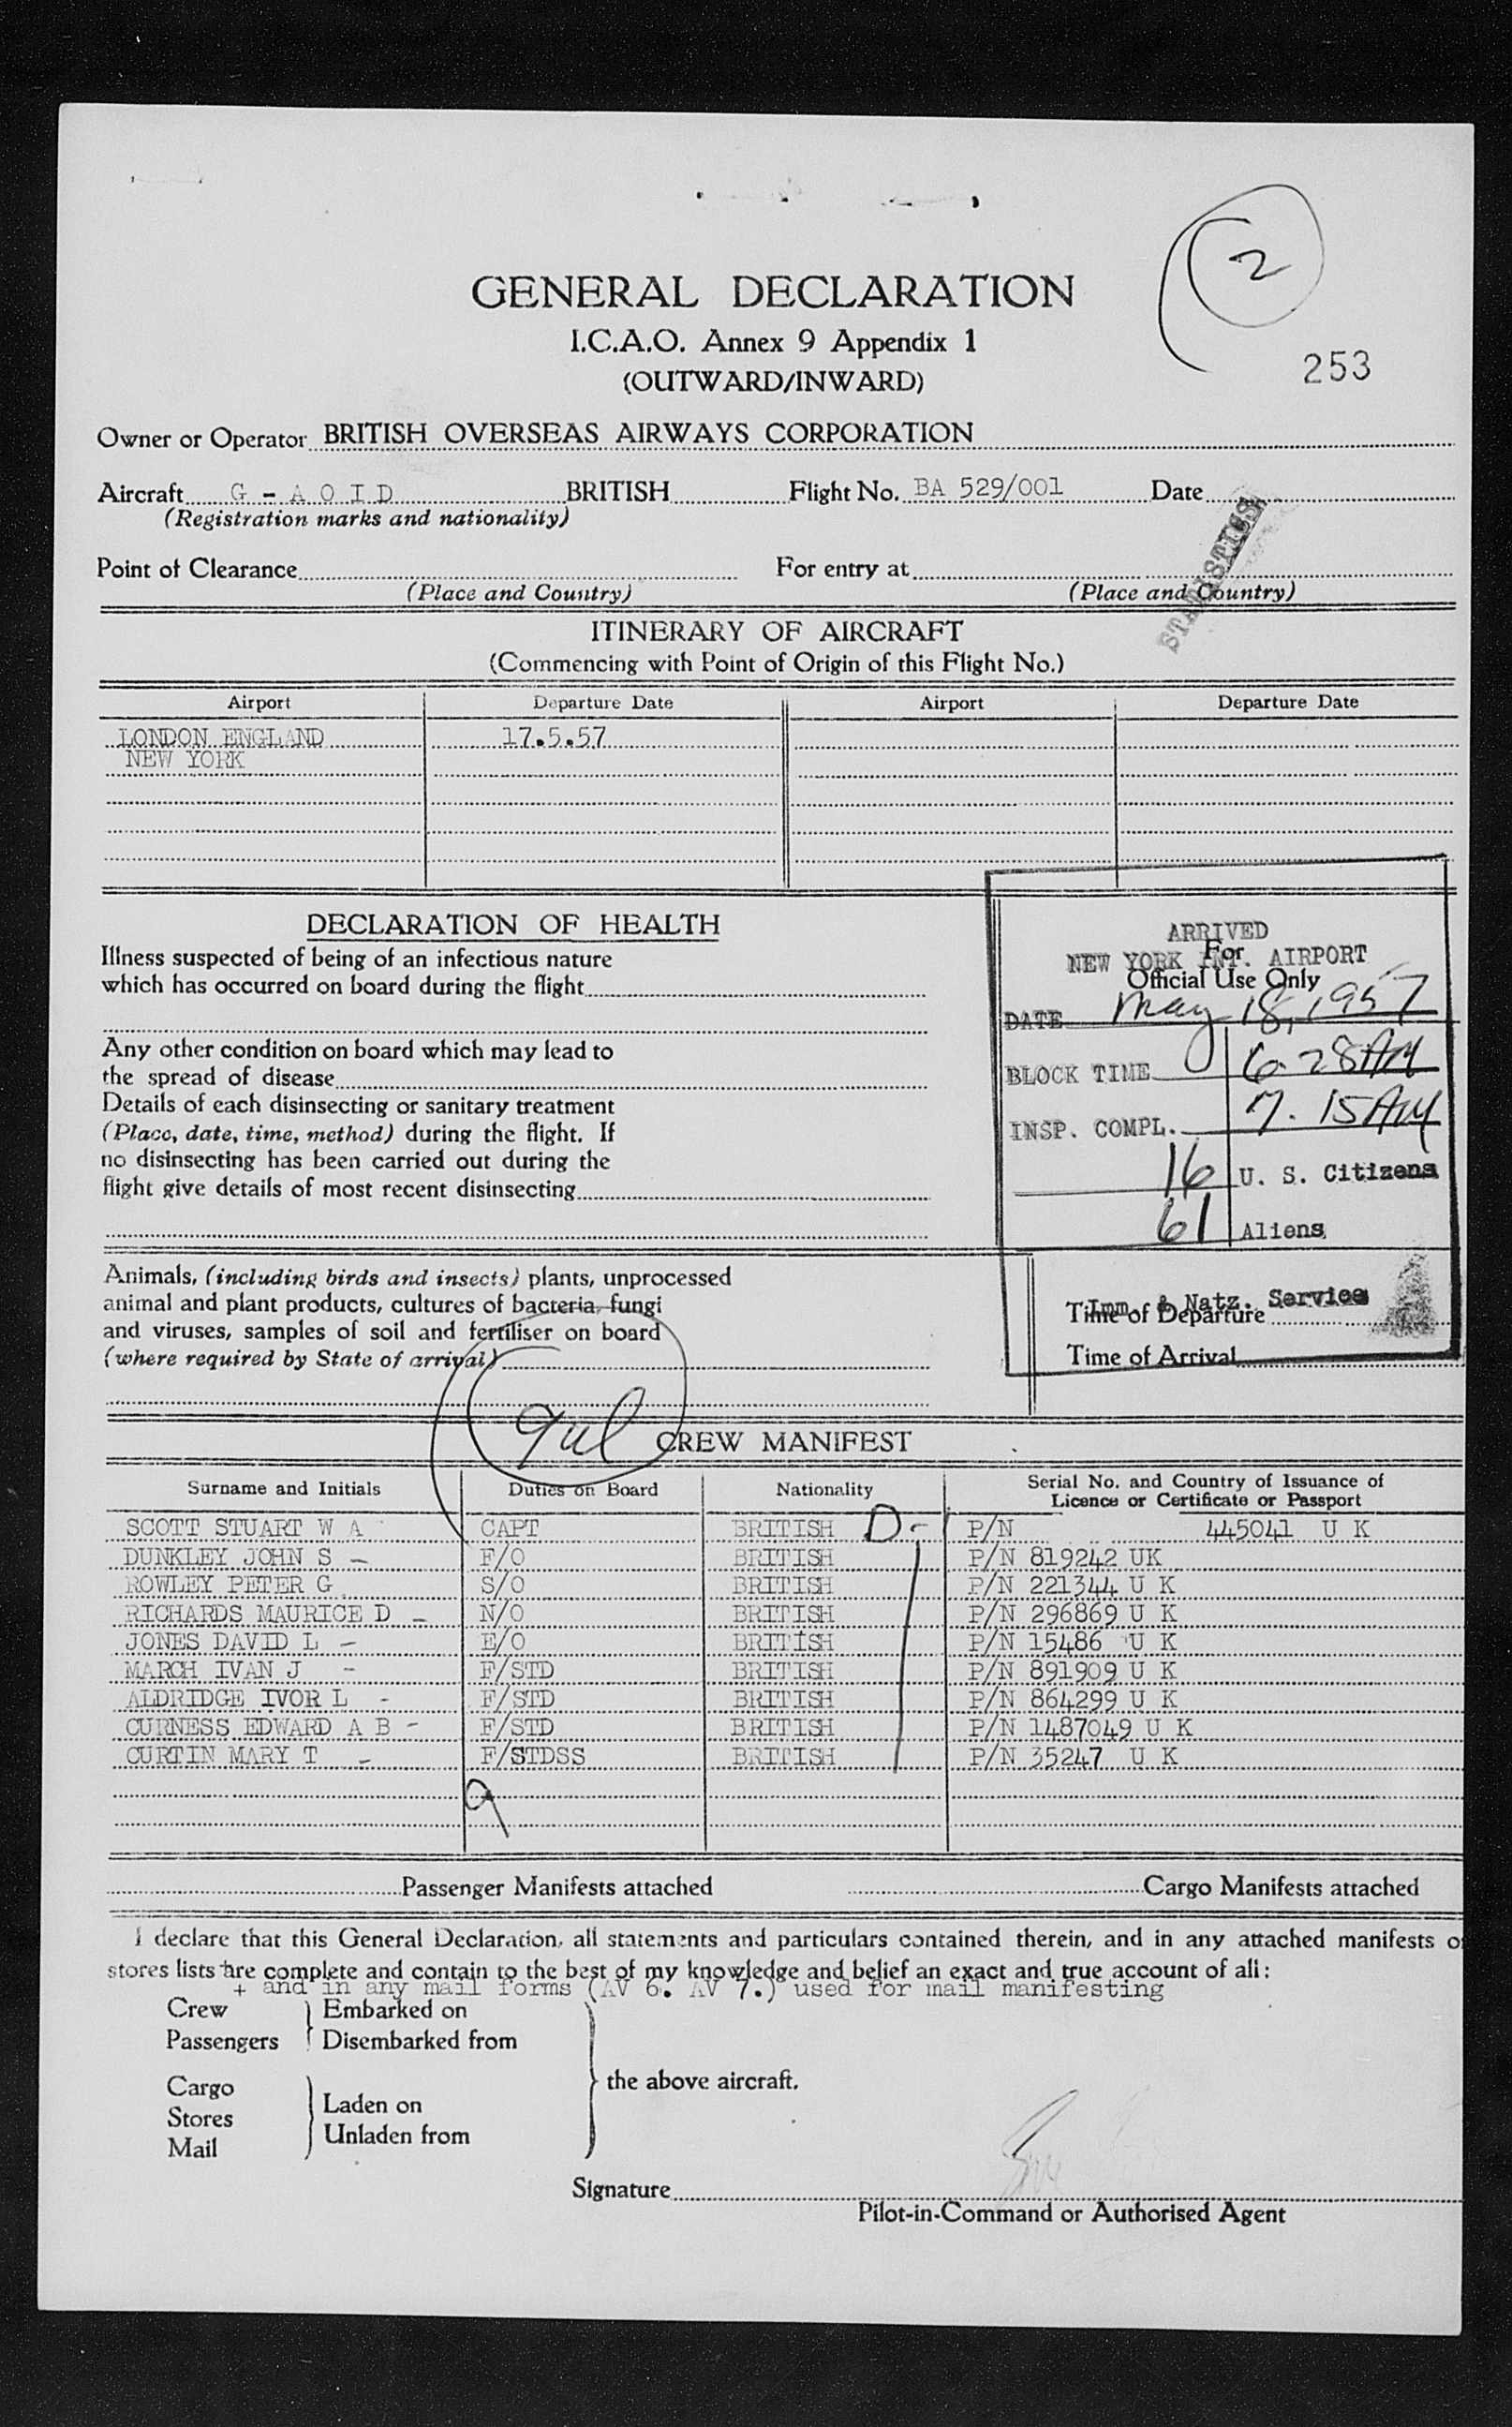 2
GENERAL DECLARATION
I.C.A.O. Annex 9 Appendix 1
(OUTWARD/INWARD)
253
Owner or Operator BRITISH OVERSEAS AIRWAYS CORPORATION
Aircraft G - A O I D BRITISH Flight No. BA 529/001 Date
(Registration marks and nationality)
STATISTICS
Point of Clearance For entry at
(Place and Country) (Place and Country)
ITINERARY OF AIRCRAFT
(Commencing with Point of Origin of this Flight No.)
Airport Departure Date Airport Departure Date
LONDON ENGLAND 17.5.57
NEW YORK
DECLARATION OF HEALTH
Illness suspected of being of an infectious nature
which has occurred on board during the flight
Any other condition on board which may lead to
the spread of disease
Details of each disinsecting or sanitary treatment
(Place, date, time, method) during the flight. If
no disinsecting has been carried out during the
flight give details of most recent disinsecting
ARRIVED
For
NEW YORK INT. AIRPORT
Official Use Only
DATE May 18, 1957
BLOCK TIME 6-28 AM
INSP. COMPL. 7.15 AM
16 U. S. Citizens
61 Aliens
Imm. & Natz. Service
Time of Departure
Time of Arrival
Animals, (including birds and insects) plants, unprocessed
animal and plant products, cultures of bacteria, fungi
and viruses, samples of soil and fertiliser on board
(where required by State of arrival)
CREW MANIFEST
Surname and Initials Duties on Board Nationality Serial No. and Country of Issuance of
Licence or Certificate or Passport
SCOTT STUART W A CAPT BRITISH D - P/N 445041 U K
DUNKLEY JOHN S - F/O BRITISH P/N 819242 UK
ROWLEY PETER G S/O BRITISH P/N 221344 U K
RICHARDS MAURICE D - N/O BRITISH P/N 296869 U K
JONES DAVID L - E/O BRITISH P/N 15486 U K
MARCH IVAN J - F/STD BRITISH P/N 891909 U K
ALDRIDGE IVOR L - F/STD BRITISH P/N 864299 U K
CURNESS EDWARD A B - F/STD BRITISH P/N 1487049 U K
CURTIN MARY T - F/STDSS BRITISH P/N 35247 U K
9
Passenger Manifests attached Cargo Manifests attached
I declare that this General Declaration, all statements and particulars contained therein, and in any attached manifests o
stores lists are complete and contain to the best of my knowledge and belief an exact and true account of all:
+ and in any mail forms (AV 6. AV 7.) used for mail manifesting
Crew Embarked on
Passengers Disembarked from
the above aircraft.
Cargo
Stores Laden on
Mail Unladen from
Signature
Pilot-in-Command or Authorised Agent